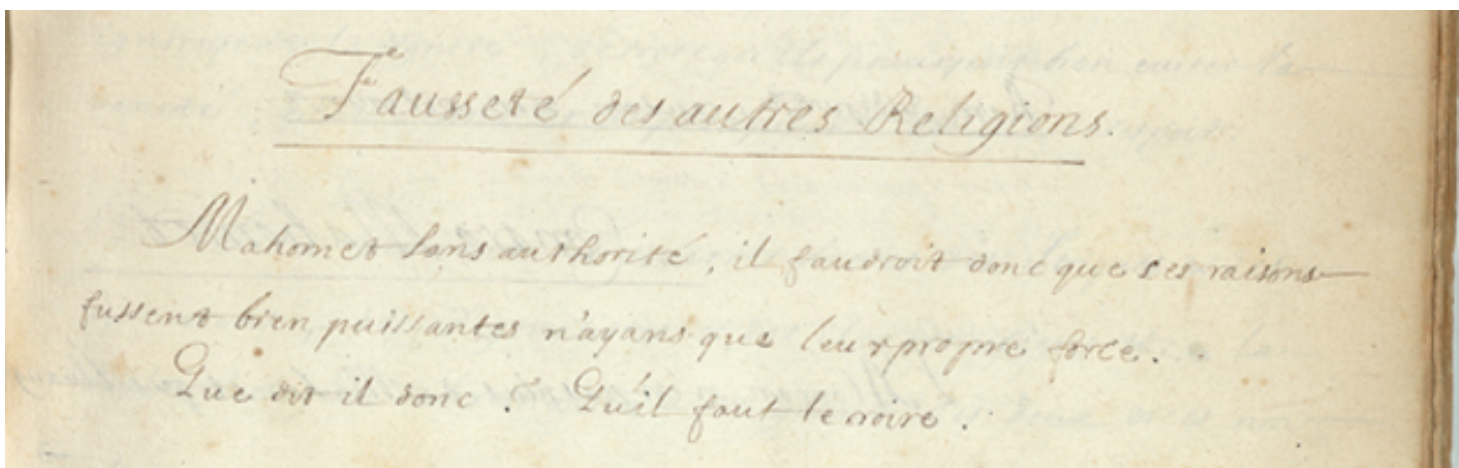 Fausseté des autres Religions.
Mahomet sans authorité, il faudroit donc que ses raisons
fussent bien puissantes n'ayans que leur propre force.
Que dit il donc ? Qu'il faut le croire.